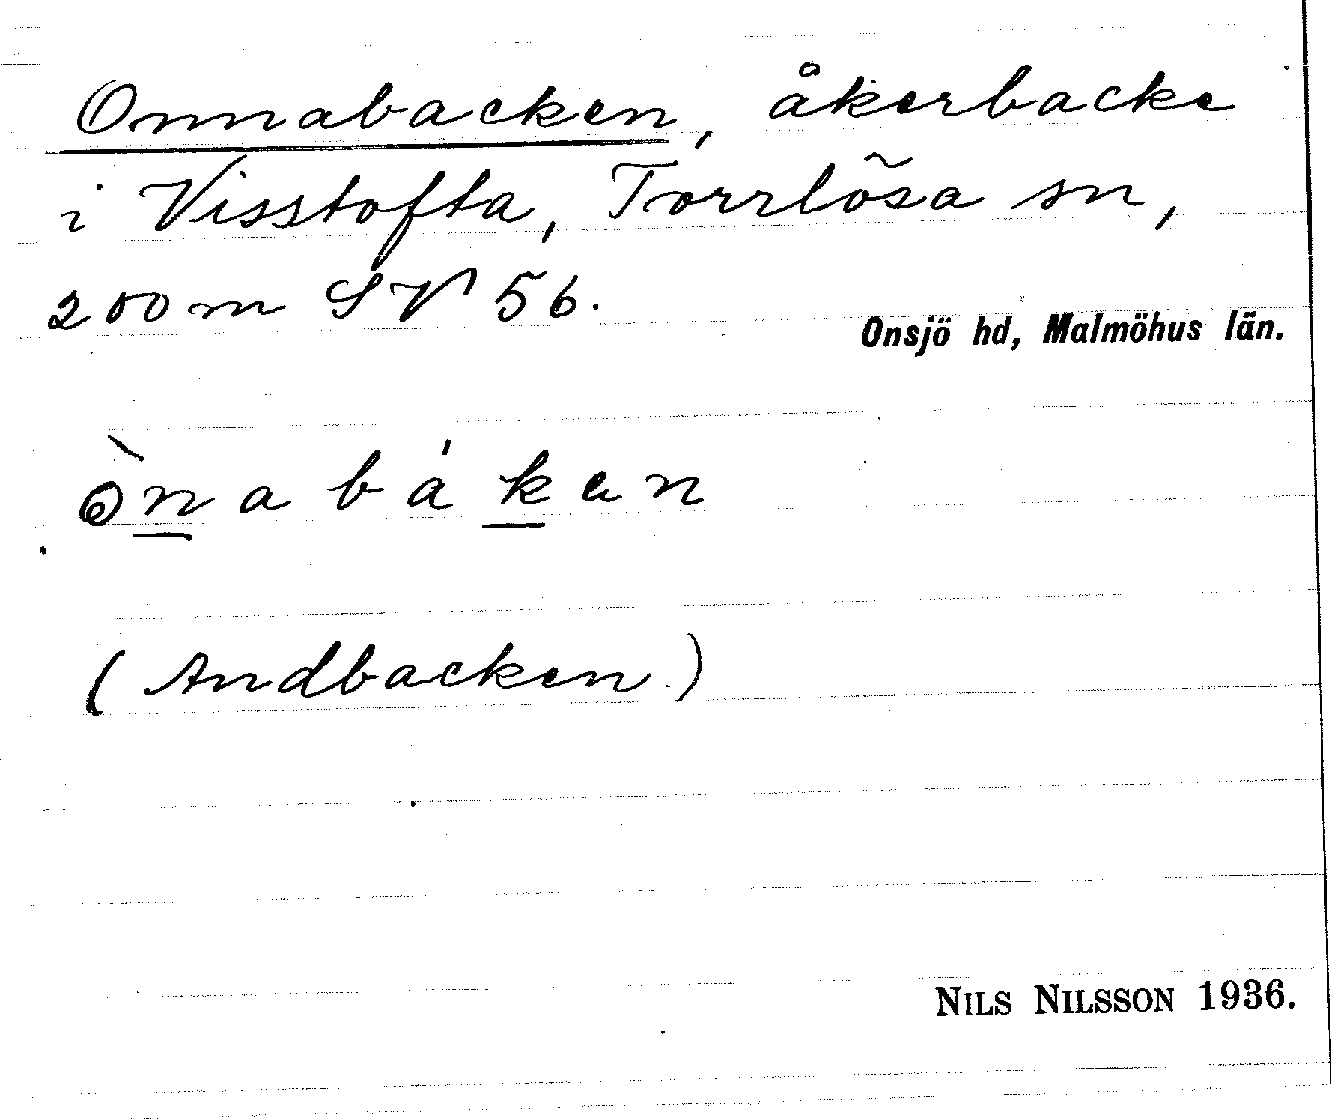 Onnabacken, åkerbacke
i Visstofta, Torrlösa sn,
200 m SV 56.
Onsjö hd, Malmöhus län.
ò̱nabáken
(Andbacken)
NILS NILSSON 1936.